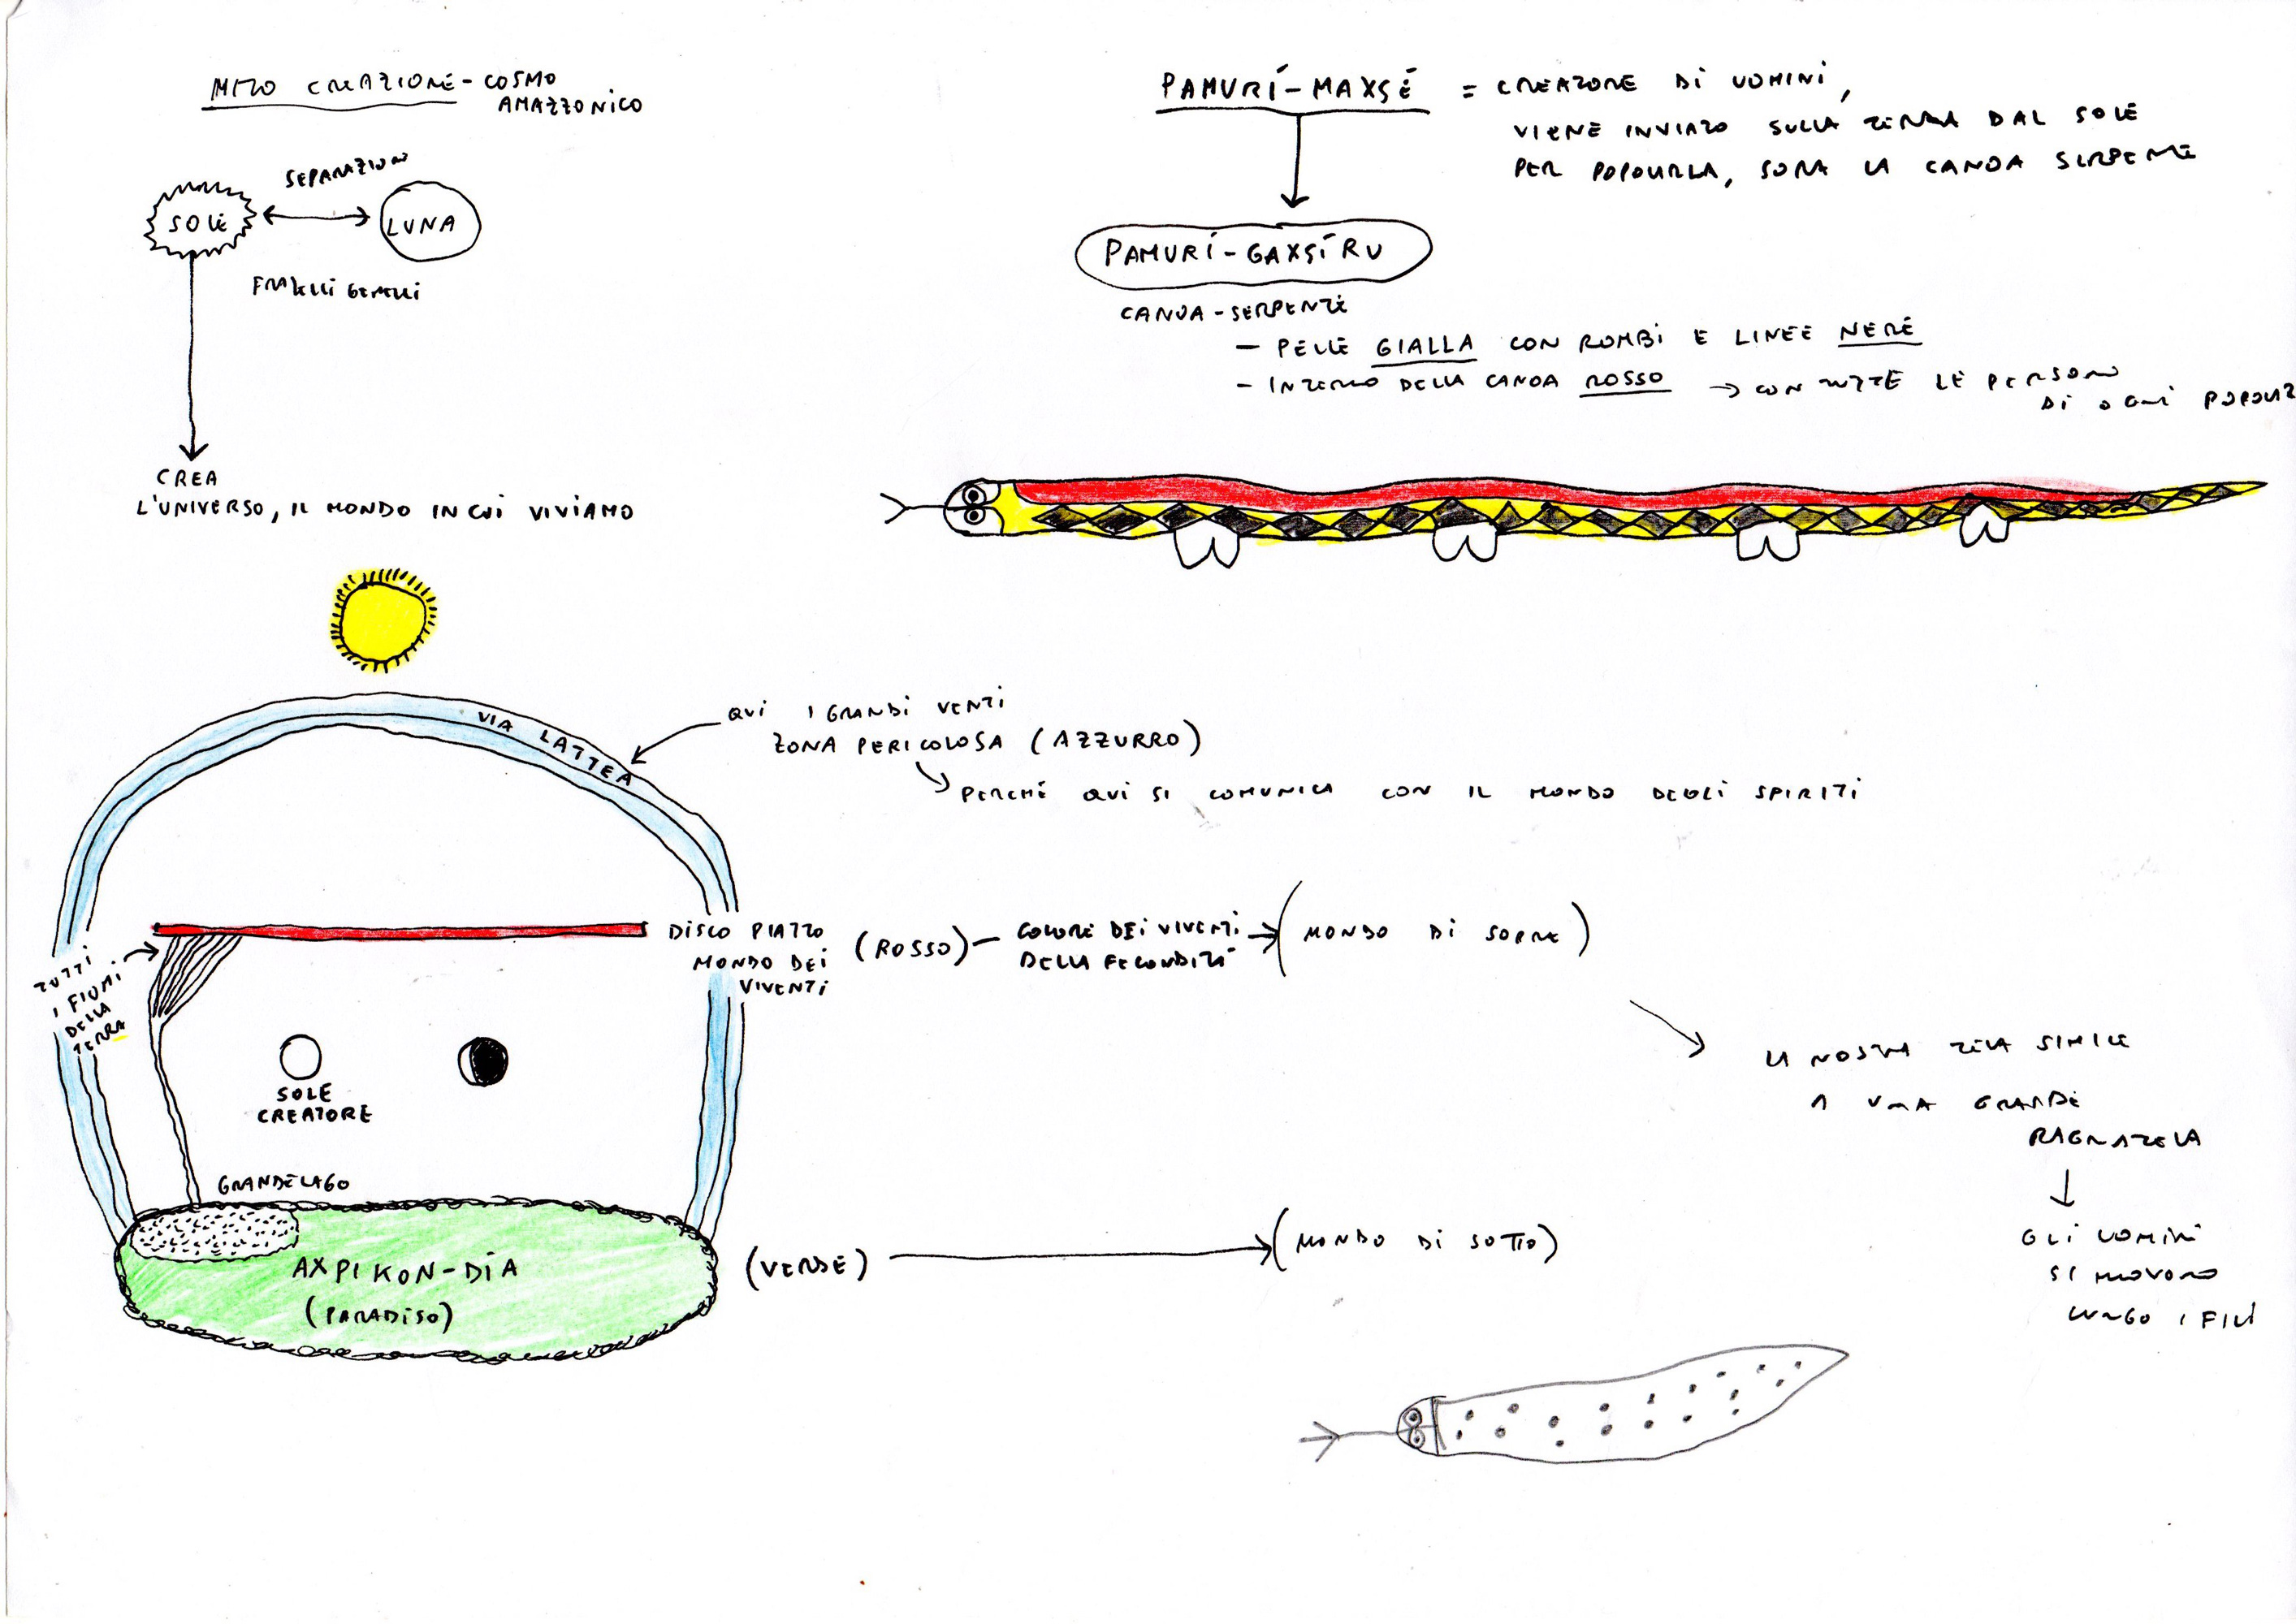 MITO CREAZIONE - COSMO
AMAZZONICO
SEPARAZION
SOLE
LUNA
FRATELLI GEMELLI
CREA
L'UNIVERSO, IL MONDO IN CUI VIVIAMO
PAMURÍ-MAXSÉ = CREATORE DI UOMINI,
VIENE INVIATO SULLA TERRA DAL SOLE
PER POPOLARLA, SOPRA LA CANOA SERPENTE
PAMURÍ-GAXSÍRU
CANOA-SERPENTE
- PELLE GIALLA CON ROMBI E LINEE NERE
- INTERNO DELLA CANOA ROSSO → CON TUTTE LE PERSONE
DI OGNI
VIA LATTEA
QUI I GRANDI VENTI
ZONA PERICOLOSA (AZZURRO)
PERCHÉ QUI SI COMUNICA CON IL MONDO DEGLI SPIRITI
DISCO PIATTO
MONDO DEI
VIVENTI
(ROSSO) - COLORE DEI VIVENTI
DELLA FECONDITÀ
→ (MONDO DI SOPRA)
TUTTI
I FIUMI
DELLA
TERRA
SOLE
CREATORE
LA NOSTRA TELA SIMILE
A UNA GRANDE
RAGNATELA
GLI UOMINI
SI MUOVONO
LUNGO I FILI
GRANDE LAGO
AXPIKON-DIA
(PARADISO)
(VERDE)
(MONDO DI SOTTO)